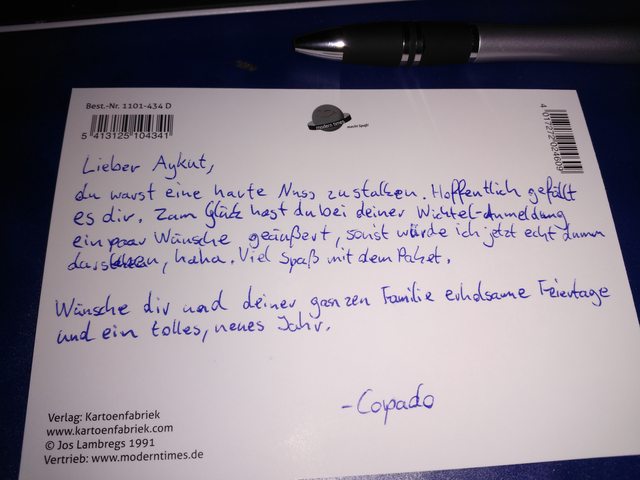 Best.-Nr. 1101-434 D
5 413125 104341
modern times
macht Spaß!
4 017272 024609
Lieber Aykut,
du warst eine harte Nuss zu stalken. Hoffentlich gefällt
es dir. Zum Glück hast du bei deiner Wichtel-Anmeldung
ein paar Wünsche geäußert, sonst würde ich jetzt echt dumm
dastehen, haha. Viel Spaß mit dem Paket.
Wünsche dir und deiner ganzen Familie erholsame Feiertage
und ein tolles, neues Jahr.
-Copado
Verlag: Kartoenfabriek
www.kartoenfabriek.com
© Jos Lambregs 1991
Vertrieb: www.moderntimes.de